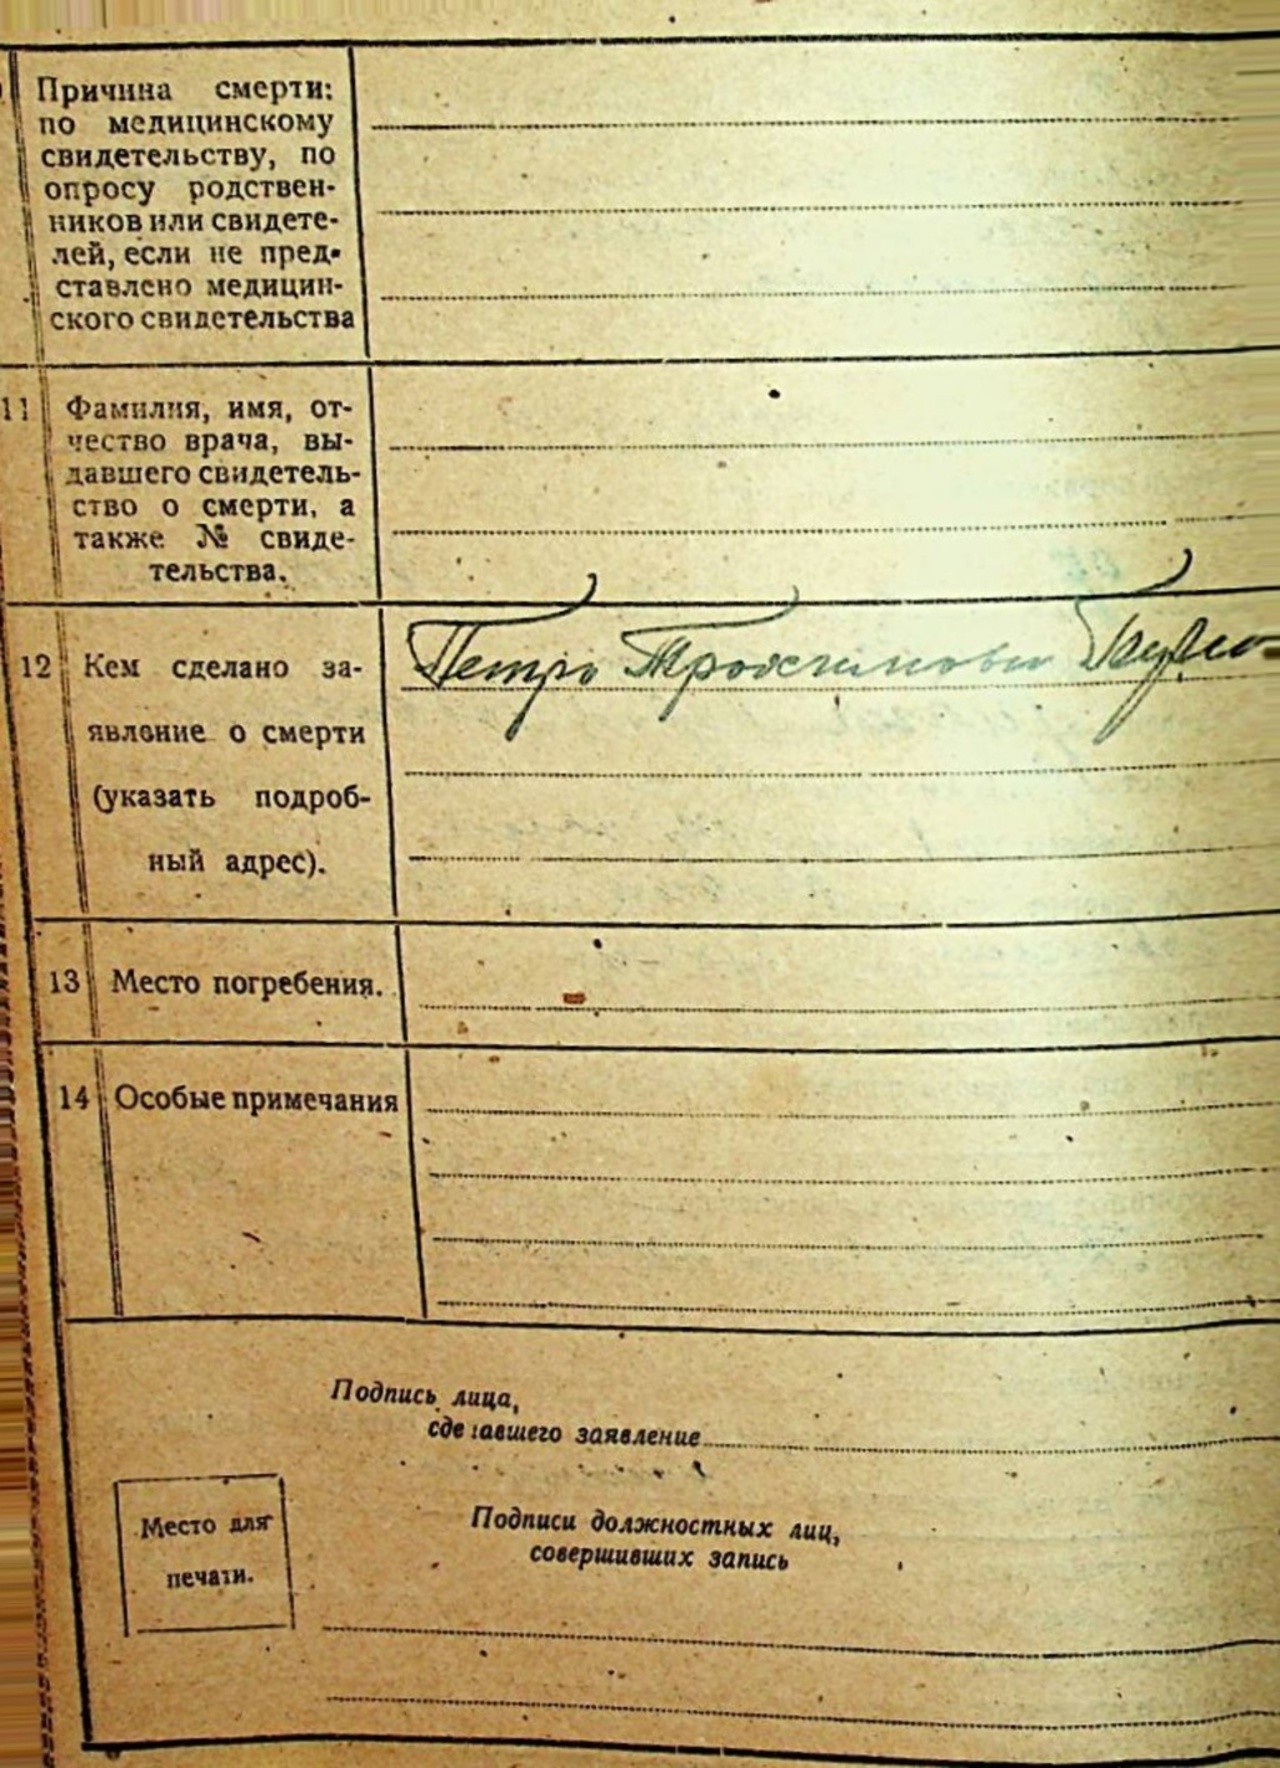 Причина смерти:
по медицинскому
свидетельству, по
опросу родствен-
ников или свидете-
лей, если не пред-
ставлено медицин-
ского свидетельства
11 Фамилия, имя, от-
чество врача, вы-
давшего свидетель-
ство о смерти, а
также № свиде-
тельства.
12 Кем сделано за-
явление о смерти
(указать подроб-
ный адрес).
Петро
13 Место погребения.
14 Особые примечания
Подпись лица,
сделавшего заявление
Место для
печати.
Подписи должностных лиц,
совершивших запись